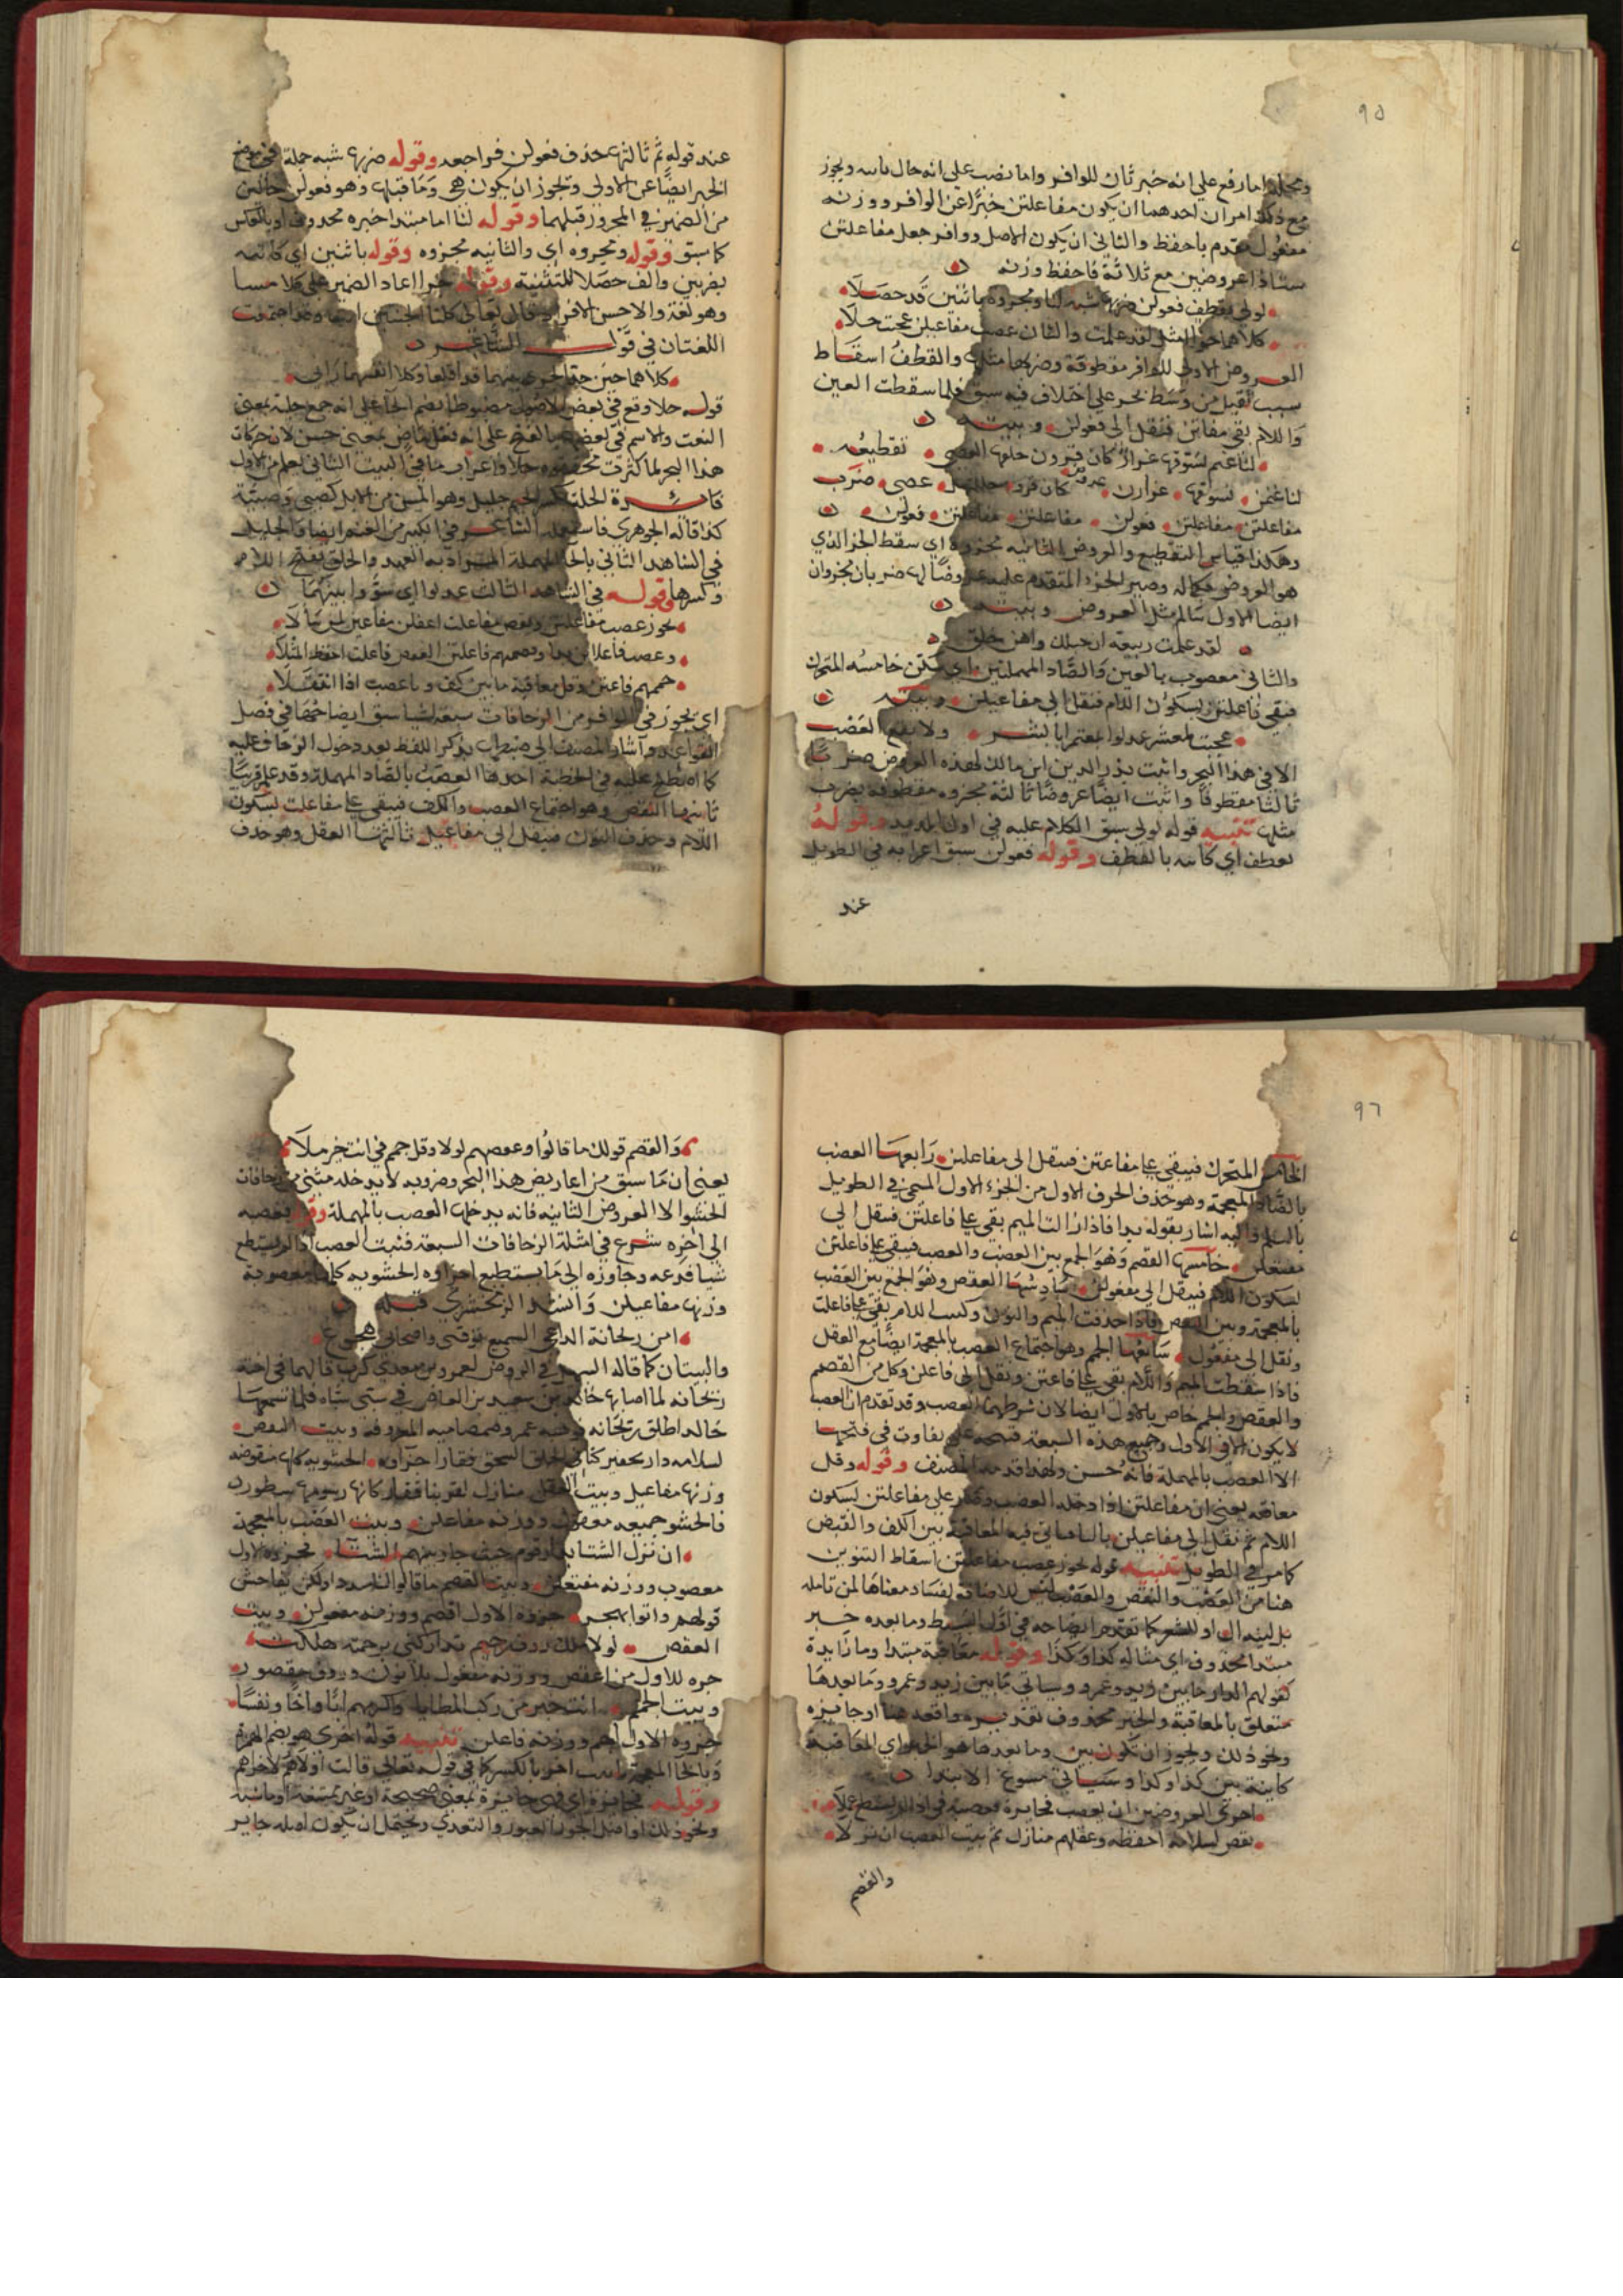 ٩٥
ومجملا اما رفع على انه خبر ثان للوافر واما نصب على انه حال ويجوز
مع ذلك امران احدهما ان يكون مفاعلتن خبرًا عن الوافر ووزنه
مفعول مقدم باحفظ والثاني ان يكون الاصل ووافر جعل مفاعلتن
ستا ذا عروضين مع ثلاثة فاحفظ وزنه
لولى بقطف فعولن ضربها شبه لنا ومجزوه باثنين قد حصلا
كلاهما جزا المثل لقد علمت والثان عصب مفاعيلن عجبت حلا
العروض الاولى للوافر مقطوفة وضربها مثلها والقطف اسقاط
سبب ثقيل من وسط الجزء على اختلاف فيه سبق فلما سقطت العين
واللام بقي مفاتن فنقل الى فعولن وبيته
لنا غنم نسوقها غزار كان قرون جلتها العصي تقطيعه
لنا غنمن نسوقها غزارن كان قرو جللتهل عصي ضرب
مفاعلتن مفاعلتن فعولن مفاعلتن مفاعلتن فعولن
وهكذا قياس التقطيع والعروض الثانية مجزوة اي سقط الجزء الذي
هو العروض بكماله وصير الجزء المتقدم عليه عروضًا لها ضربان مجزوان
ايضا الاول سالم مثل العروض وبيته
لقد علمت ربيعة ان حبلك واهن خلق
والثاني معصوب بالعين والصاد المهملتين اي سكن خامسه المتحرك
فبقي مفاعلتن بسكون اللام فنقل الى مفاعيلن وبيته
عجبت لمعشر عدلوا بمعتمر ابا بشر ولا يقع العصب
الا في هذا البحر واثبت بدر الدين ابن مالك لهذه العروض ضربًا
ثالثا مقطوفًا واثبت ايضًا عروضًا ثالثة مجزوه مقطوفة بضرب
مثلها تنبيه قوله لولى سبق الكلام عليه في اول المديد وقوله
بقطف اي كاينه بالقطف وقوله فعولن سبق اعرابه في الطويل
عند
عند قوله ثم ثالثها حذف فعولن فراجعه وقوله ضربها شبه جملة في موضع
الخبر ايضًا عن الاولى ويجوز ان يكون هي وما قبلها وهو فعولن حالين
من الضمير في المجرور قبلهما وقوله لنا اما مبتدا خبره محذوف او بالعكس
كما سبق وقوله ومجزوه اي والثانيه مجزوه وقوله باثنين اي كاينه
بضربين والف حصلا للتثنية وقوله جزا اعاد الضمير على كلا مسا
وهو لغة والاحسن الافراد قال تعالى كلتا الجنتين اتت وقد اجتمعت
اللغتان في قول الشاعر
كلاهما حين جد الجري بينهما قد اقلعا وكلا انفيهما رابى
قوله حلا وقع في بعض الاصول مضبوطا بضم الحا على انه جمع حلية بمعنى
النعت والاسم في بعضها بالفتح على انه فعل ماض بمعنى حسن لان حركات
هذا البحر لما كثرت حلا واعراب ما في البيت الثاني يعلم من الاول
فايدة الجلة بكسر الجيم جليل وهو المسن من الابل كصبي وصبية
كذا قاله الجوهري فاستعمله الشاعر في الكبير من الغنم ايضا والحبل
في الشاهد الثاني بالحا المهملة المراد به العهد والخلق بفتح اللام
وكسرها وقوله في الشاهد الثالث عدلوا اي سووا بينهما
يجوز عصب مفاعلتن ونقص مفاعلت اعقلن مفاعلن لمن سألا
وعصب فاعلا بدا وقصمهم فاعلتن العقص فاعلت احفظ المثلا
جممهم فاعتن وقل معاقبة ما بين كف و با عصب اذا انتقلا
اي يجوز في الوافر من الزحافات سبعة اشيا سبق ايضاحها في فصل
القواعد واشار المصنف الى ضبطها بذكر اللفظ بعد دخول الزحاف عليه
كما اصطلح عليه في الخطبة احدها العصب بالصاد المهملة وقد علم قريبًا
ثانيها النقص وهو اجتماع العصب والكف فيبقى على مفاعلت بسكون
اللام وحذف النون فينقل الى مفاعيل ثالثها العقل وهو حذف
٩٦
الخامس المتحرك فيبقى على مفاعتن فينقل الى مفاعلن رابعها العضب
بالضاد المعجمة وهو حذف الحرف الاول من الجزء الاول المسمى في الطويل
بالثلم واليه اشار بقوله بدا فاذا زالت الميم بقي على فاعلتن فينقل الى
مفتعلن خامسها القصم وهو الجمع بين العضب والعصب فيبقى على فاعلتن
بسكون اللام فينقل الى مفعولن سادسها العقص وهو الجمع بين العضب
بالمعجمة وبين النقص فاذا حذفت الميم والنون وسكنت اللام بقي على فاعلت
ونقل الى مفعول سابعها الجمم وهو اجتماع العضب بالمعجمة ايضا مع العقل
فاذا سقطت الميم واللام بقي على فاعتن ونقل الى فاعلن وكل من القصم
والعقص والجمم خاص بالاول ايضا لان شرطهما العضب وقد تقدم ان العضب
لا يكون الا في الاول وجميع هذه السبعة قبيحة على تفاوت في قبحها
الا العصب بالمهملة فانه حسن ولهذا قدمه المصنف وقوله وقل
معاقبه يعني ان مفاعلتن اذا دخله العصب وصار على مفاعلتن بسكون
اللام ثم نقل الى مفاعيلن بالياء ياتي فيه المعاقبة بين الكف والقبض
كما مر في الطويل تنبيه قوله يجوز عصب مفاعلتن اسقاط التنوين
هنا من العصب والنقص والعضب ليس للاضافة لفساد معناها لمن تامله
بل لنية ال او للشعر كما تقدم ايضاحه في اول البسيط وما بعده خبر
مبتدا محذوف اي مثاله كذا وكذا وقوله معاقبة مبتدا وما زايدة
كقولهم الدار ما بين زيد وعمرو وسياتي ما بين زيد وعمرو وما بعدها
متعلق بالمعاقبة والخبر محذوف تقديره واقعة هنا او جايزه
ونحو ذلك ويجوز ان يكون بين وما بعدها هو الخبر اي المعاقبة
كاينة بين كذا وكذا وسياتي مسوغ الابتدا
اخرى العروضين ان تعصب فجايزة فعصبه في اذا لم تستطع عملا
نقص لسلامة احفظه وعقلهم منازل ثم بيت العضب ان نزلا
والقصم
والقصم قولك ما قالوا وعقصهم لولا وقل جمم في انت خير ملا
يعني ان ما سبق من اعاريض هذا البحر وضروبه لا يدخله شي من زحافات
الحشو الا العروض الثانيه فانه يدخلها العصب بالمهملة وقوله فعصبه
الى اخره شرع في امثلة الزحافات السبعة فبيت العصب اذا لم تستطع
شيا فدعه وجاوزه الى ما تستطيع اجزاوه الحشوية كلها معصوبة
وزنها مفاعيلن وانشد الزمخشري قبله
امن ريحانة الداعي السميع يورقني واصحابي هجوع
والبيتان كما قاله السهيلي في الروض لعمرو بن معدي كرب قالهما في اخته
ريحانه لما اصابها خالد بن سعيد بن العاص في سبي سباه فلما
خالد اطلق ريحانه وهبه عمرو صمصامته المعروفه وبيت النقص
لسلامه دار بحفير كباقي الخلق السحق قفار اجزاوه الحشويه كلها منقوصه
وزنها مفاعيل وبيت العقل منازل لفرتنا قفار كانما رسومها سطور
فالحشو جميعه معقول ووزنه مفاعلن وبيت العضب بالمعجمة
ان نزل الشتا بدار قوم تجنب جار بيتهم الشتا فجزوه الاول
معضوب ووزنه مفتعلن وبيت القصم ما قالوا لنا سددا ولكن تفاحش
قولهم واتوا بهجر جزوه الاول اقصم ووزنه مفعولن وبيت
العقص لولا ملك روف رحيم تداركني برحمته هلكت
جزوه الاول من اعقص ووزنه مفعول بلا نون وروف مقصور
وبيت الجمم انت خير من ركب المطايا واكرمهم ابًا واخًا ونفسًا
جزوه الاول اجم ووزنه فاعلن تنبيه قوله اخرى هو بضم الهمزة
وبالخا المعجمة تانيث اخر بالكسر كما في قوله تعالى قالت اولاهم لاخراهم
وقوله فجايزة اي فهي جايزة بمعنى صحيحة او غير ممتنعة او ماشية
ونحو ذلك او اصل الجواز العبور والتعدي ويحتمل ان يكون اصله جاير